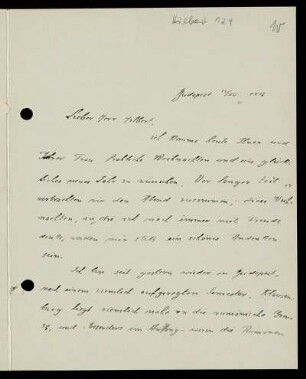 Hilbert 129
Budapest
Lieber Herr Hilbert,
ich komme heute Ihnen und
Ihrer Frau fröhliche Weihnachten und ein glück-
liches neues Jahr zu wünschen. Vor langer Zeit
wir den Abend zusammen; diese Weih-
nachten, an die ich noch immer mit Freude
denke, werden mir stets ein schönes Andenken
sein.
Ich bin seit gestern wieder in Budapest,
nach einem ziemlich aufgeregten Semester. Klausen-
burg liegt ziemlich nahe an die rumänische Gren-
ze, und besonders im Anfang waren die Rumänen